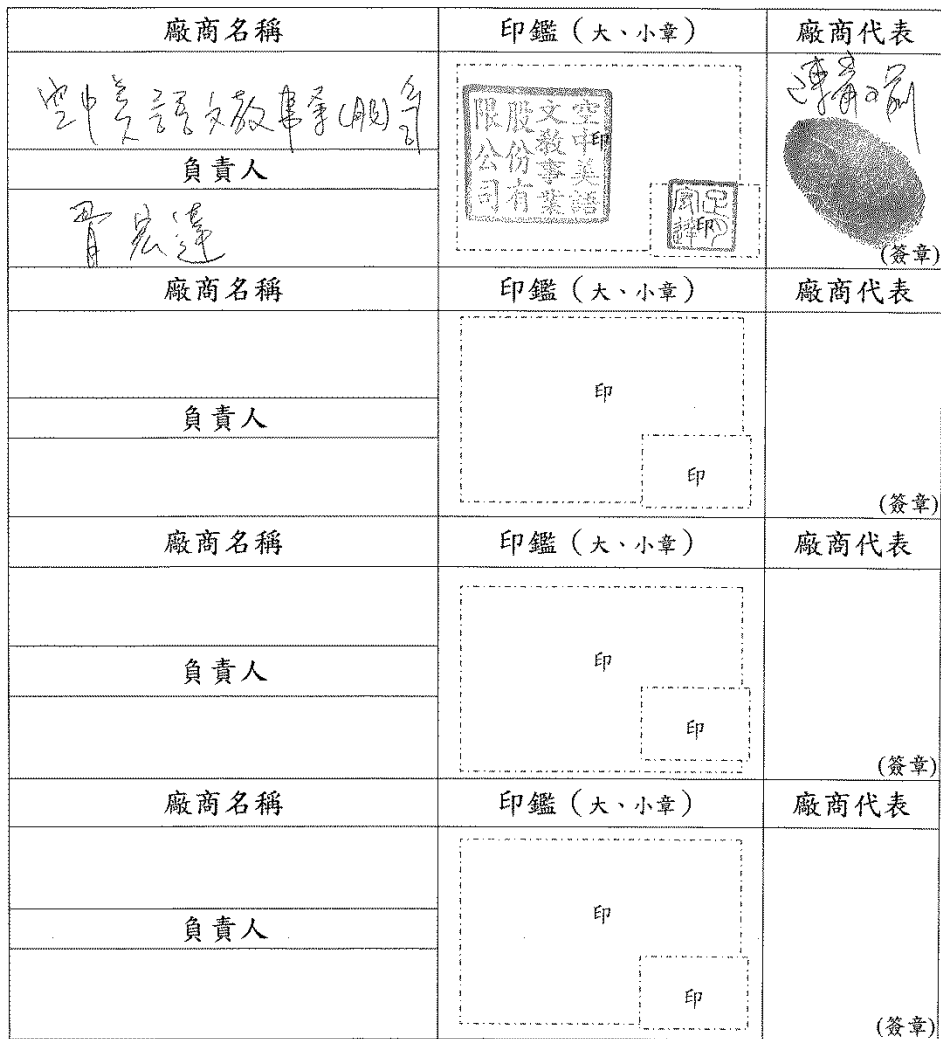 廠商名稱 印鑑（大、小章） 廠商代表
空中美語文教事業(股)公司
空中英語文教事業股份有限公司
印
負責人
宏達
印
(簽章)
廠商名稱 印鑑（大、小章） 廠商代表
印
負責人
印
(簽章)
廠商名稱 印鑑（大、小章） 廠商代表
印
負責人
印
(簽章)
廠商名稱 印鑑（大、小章） 廠商代表
印
負責人
印
(簽章)